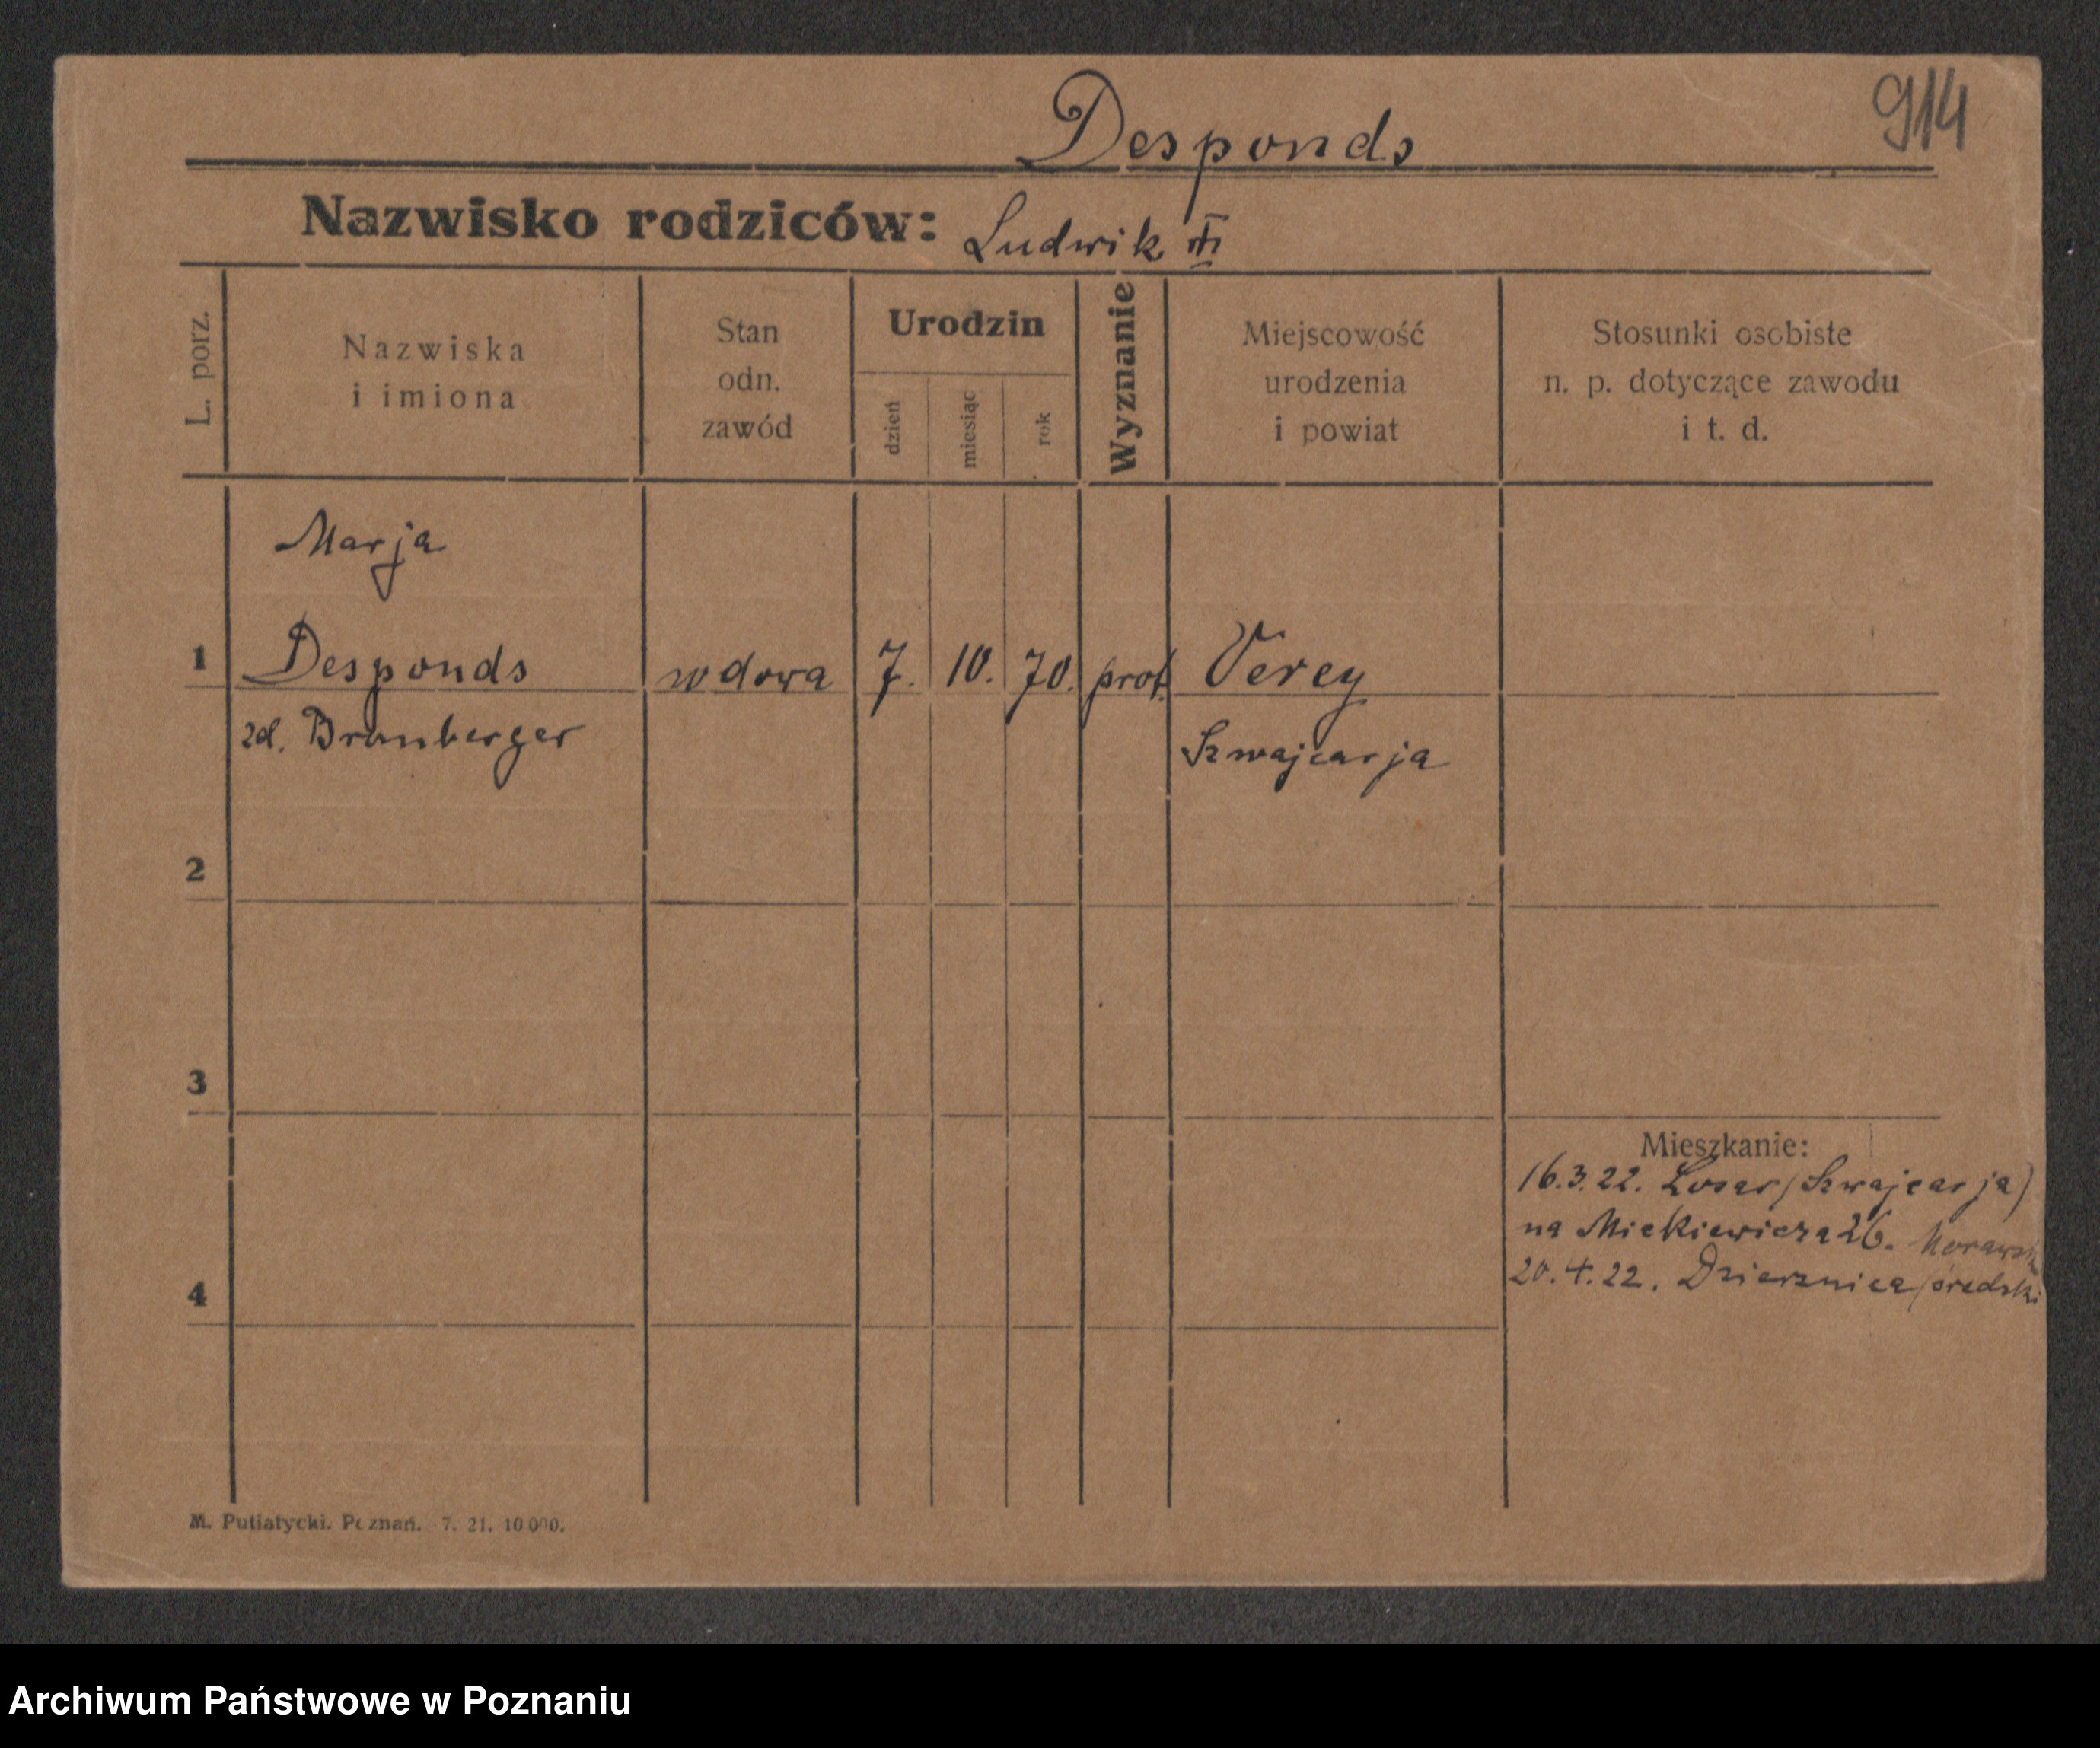 914
Desponds
Nazwisko rodziców: Ludwik
L. porz.
Nazwiska
i imiona
Stan
odn.
zawód
Urodzin
dzień
miesiąc
rok
Wyznanie
Miejscowość
urodzenia
i powiat
Stosunki osobiste
n. p. dotyczące zawodu
i t. d.
Marja
1 Desponds wdowa 7. 10. 70. prot. Verey
zd. Branberger Szwajcarja
2
3
Mieszkanie:
16.3.22. (Szwajcarja)
na Mickiewicza 26.
20.4.22. Dzierznica/średzki
4
M. Putiatycki. Poznań. 7. 21. 10000.
Archiwum Państwowe w Poznaniu